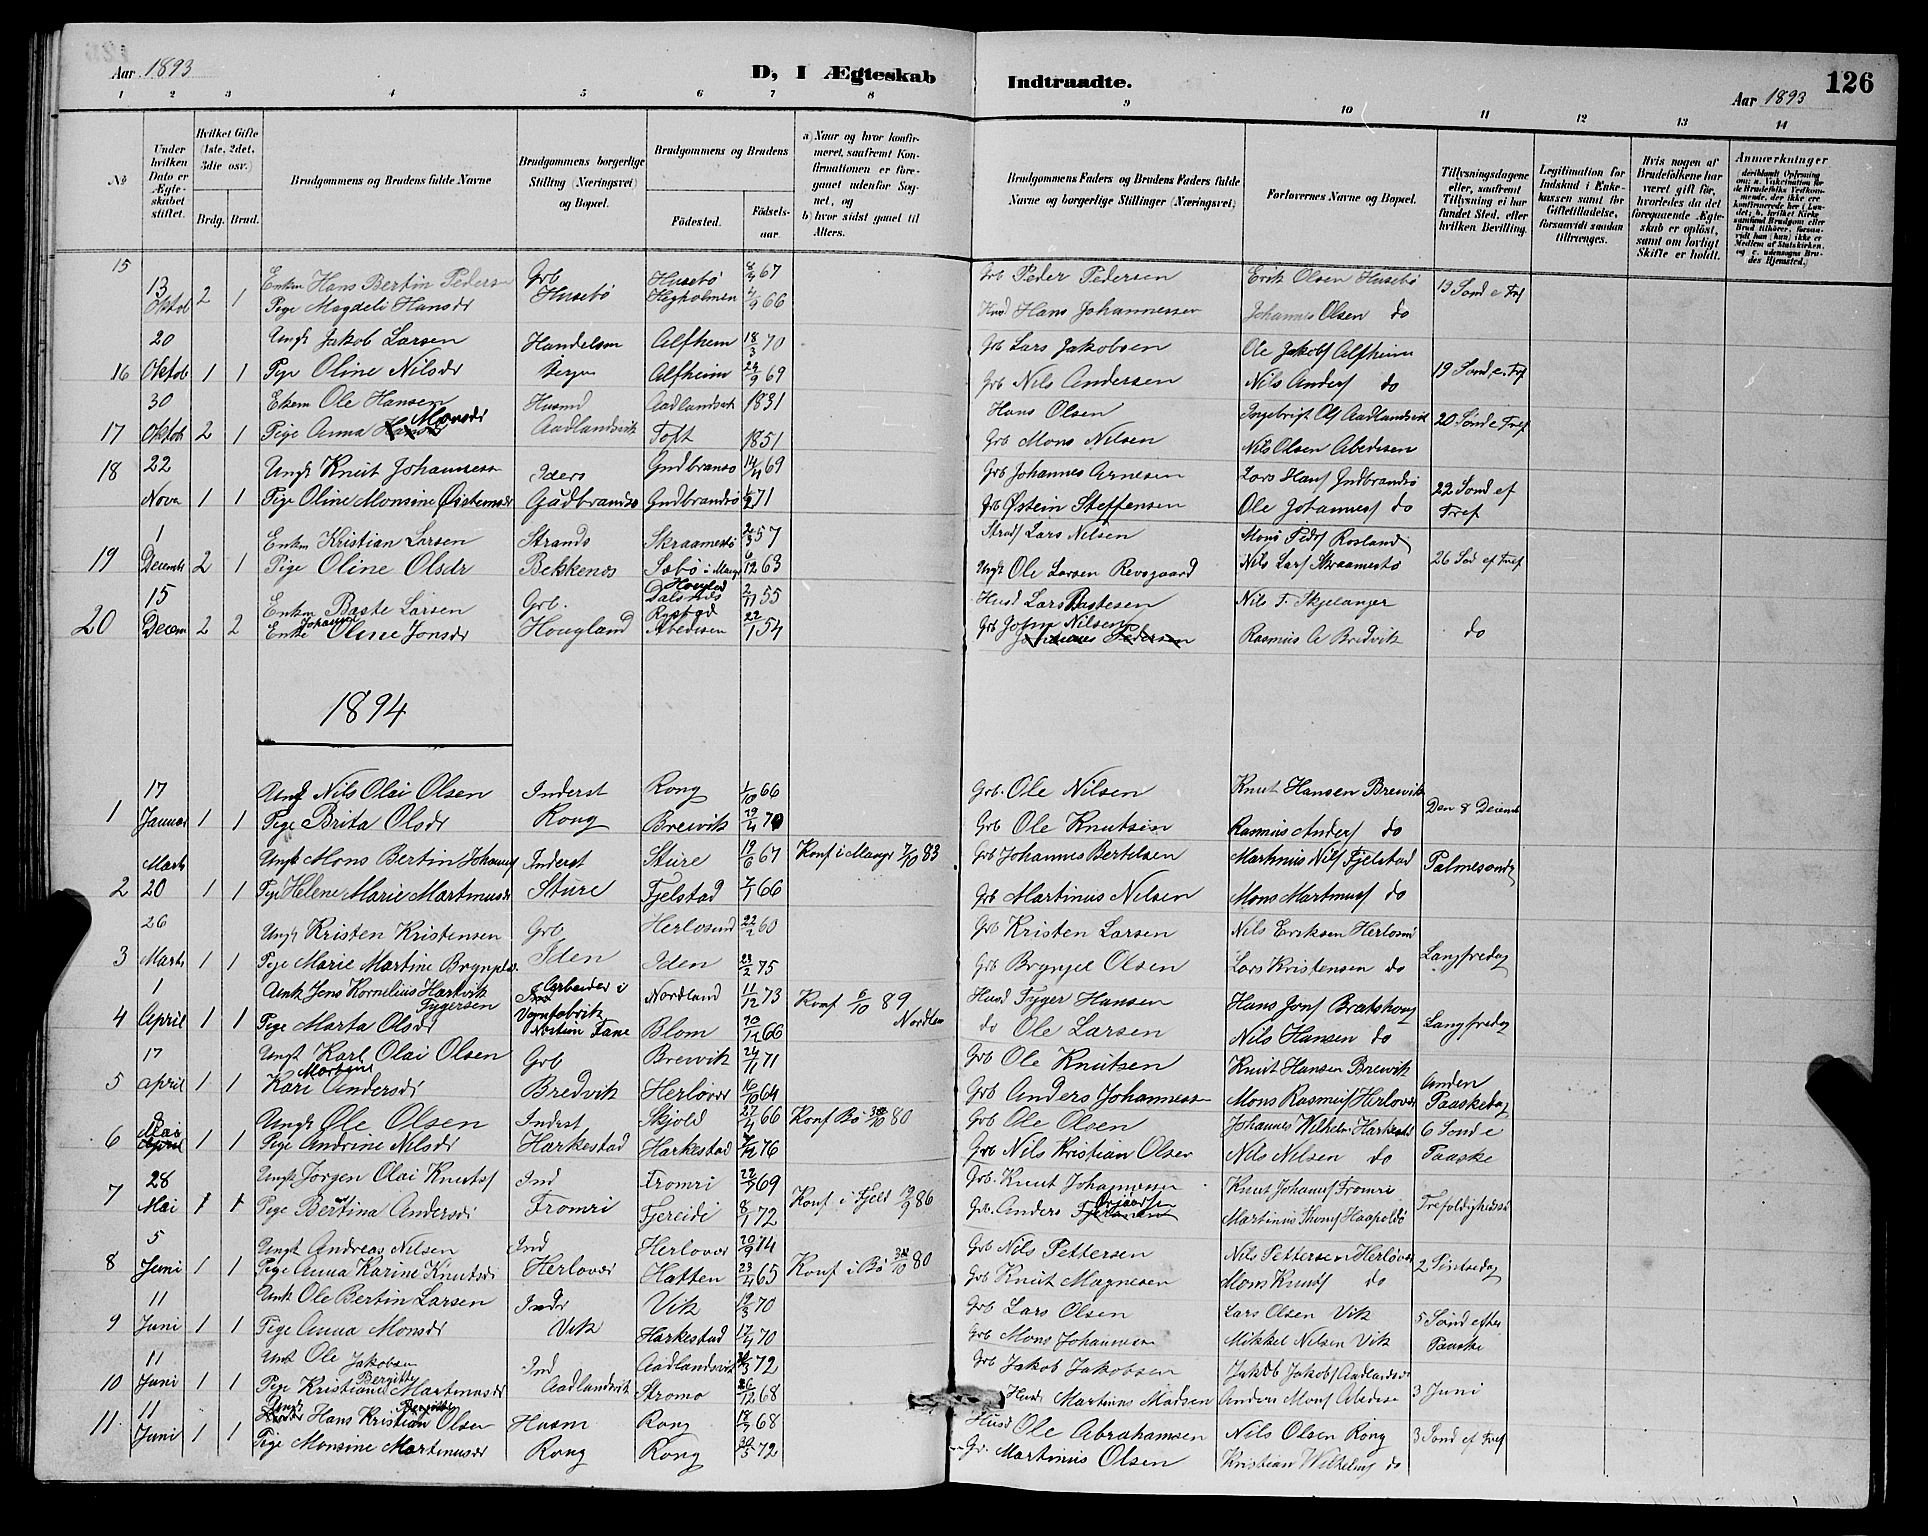 126
Aar 1893 D, I Ægteskab Indtraadte. Aar 1893
1 2 3 4 5 6 7 8 9 10 11 12 13 14
No
Under hvilken Dato er Ægteskabet stiftet.
Hvilket Gifte (1ste, 2det, 3die osv.)
Brdg. Brud.
Brudgommens og Brudens fulde Navne
Brudgommens borgerlige Stilling (Næringsvei) og Bopæl.
Brudgommens og Brudens
Födested. Födselsaar
a) Naar og hvor konfirmeret, saafremt Konfirmationen er foregaaet udenfor Sognet, og
b) hvor sidst gaaet til Alters.
Brudgommens Faders og Brudens Faders fulde Navne og borgerlige Stillinger (Næringsvei)
Forlovernes Navne og Bopæl.
Tillysningsdagene eller, saafremt Tillysning ei har fundet Sted, efter hvilken Bevilling.
Legitimation for Indskud i Enkekassen samt for Giftetilladelse, forsaavidt saadan tiltrænges.
Hvis nogen af Brudefolkene har været gift för, hvorledes da det foregaaende Ægteskab er oplöst, samt om lovligt Skifte er holdt.
Anmærkninger
15 13 Enkm Hans Bertin Pederse Grb Husebö 8/4 67 Grb Peder Pedersen Erik Olsen Husebö 19 Sond e Tref
Oktob 2 1 Pige Magdeli Hansdr Husebö 66 Hmd Hans Johannessen Johannes Olsen do
20 Ungk Jakob Larsen Handelsm Alfheim 18/3 70 Grb Lars Jakobsen Ole Jakobs Alfheim
16 Oktob 1 1 Pige Oline Nilsdr Bergen Alfheim 24/9 69 Grb Nils Andersen Nils Anders do 19 Sond. e. Tref
30 Ekem Ole Hansen Husmd Aadlandsvk 1831 Hans Olsen Ingebrigt Ols Aadlandsvik 20 Sönd e Tref
17 Oktob 2 1 Pige Anna Monsdr Aadlandsvik Toft 1851 Grb Mons Nilsen Nils Olsen Abedesen
18 22 Ungk Knut Johannessn Iders Gudbransö 14/4 69 Grb Johannes Arnesen Lars Hans Gudbrandsö 22 Sond ef
Nova 1 1 Pige Oline Monsine Øistensdr Gudbrandsö Gudbrandsö 71 Grb Østein Steffensen Ole Johannes do Tref
1 Enkm Kristian Larsen Strands Skraamestö 2/3 57 Strds Lars Nilsen Mons Peds Rosland
19 Decemb 2 1 Pige Oline Olsdr Bekkenes Sæbö i Mangr 6/12 63 Ungk Ole Larsen Revsgaard Nils Lars Skraamestö 26 Sod ef Tref
15 Enkm Baste Larsen Grb. Dalsnes Hougland 2/11 55 Husd Lars Bastesen Nils T. Skjelanger
20 Decem 2 2 Enke Johanne Oline Jonsdr Hougland Abedesen 22/1 54 Grb John Nilsen Rasmus A Bredvik do
Johannes Pedersen
1894
17 Ungk Nils Olai Olsen Inderst Rong 1/10 66 Grb. Ole Nilsen Knut Hansen Breivik Den 8 Decemb
1 Januar 1 1 Pige Brita Olsdr Rong Breivik 29/4 70 Grb Ole Knutsen Rasmus Anders do
Marts Ungk Mons Bertin Johans Inderst Sture 19/6 67 Konf i Mangr 7/10 83 Grb Johannes Bertelsen Martinus Nils Fjelstad Palmesondg
2 20 1 1 Pige Helene Marie Martinusdr Sture Fjelstad 7/1 66 Grb Martinus Nilsen Mons Martinus do
26 Ungk Kristen Kristensen Grb Herlosund 60 Grb Kristen Larsen Nils Eriksen Herlosund
3 Marts 1 1 Pige Marie Martine Brynjelsdr Iden Iden 23/2 75 Grb Brynjel Olsen Lars Kristensen do Langfredag
1 Unk Jens Kornelius Hartvik Tygersen Arbeider i Nordland 11/12 73 Konf 6/10 89 Nordlan Husd Tyger Hansen Hans Jons Bratshoug
4 April 1 1 Pige Marta Olsdr Vognfabrik Nestun Fane Blom 66 do Ole Larsen Nils Hansen do Langfredag
17 Ungk Karl Olai Olsen Grb Breivik 24/11 71 Grb Ole Knutsen Knut Hansen Breivik
5 April 1 1 Kari Martine Andersdr Bredvik Herlövær 16/10 64 Grb Anders Johannessn Mons Rasmus Herlovær Anden Paaskedag
8 Ungk Ole Olsen Inderst Skjold 27/4 66 Konf Bö 80 Grb Ole Olsen Johannes Wilhelm Harkestd 6 Sond e
6 Mai 1 1 Pige Andrine Nilsdr Harkestad Harkestad 76 Grb Nils Kristian Olsen Nils Nelsen do Paaske
28 Ungk Jörgen Olai Knuts Ind Fromri 22/7 69 Grb. Knut Johannessen Knut Johans Fromri
7 Mai 1 1 Pige Bertina Andersdr Fromri Fjereidi 8/1 72 Konf i Fjeld 86 Grb. Anders Martinus Thoms Haapoldö Trefoldighedssö
5 Ungk Andreas Nilsen Ind Herlover 20/9 74 Grb Nils Pettersen Nils Pettersen Herlövær
8 Juni 1 1 Pige Anna Karine Knutsdr Herlovær Hatten 23/4 65 Konf i Bö 80 Grb Knut Magnesen Mons Knuds do 2 Pintsedag
11 Unk Ole Bertin Larsen Indr Vik 19/3 70 Grb Lars Olsen Lars Olsen Vik 5 Sönd efter
9 Juni 1 1 Pige Anna Monsdr Vik Harkestad 17/4 70 Grb Mons Johannessn Mikkel Nilsen Vik Paaske
11 Unk Ole Jakobsen Ind Aadlandsvik 72 Grb Jakob Jakobsen Jakob Jakobs Aadlandsv
10 Juni 1 1 Pige Kristiane Bergitte Martinusdr Aadlandsvik Stromo 26/12 68 Husd Martinus Madsen Anders Mons Abedese 3 Juni
11 Ungk Hans Kristian Olsen Husm Rong 68 Husd Ole Abrahamsen Nils Olsen Rong 3 Sond ef Tref
11. Juni 1 1 Pige Monsine Martinusdr Rong Rong 72 Gr. Martinus Olsen Kristian Wilhelms do